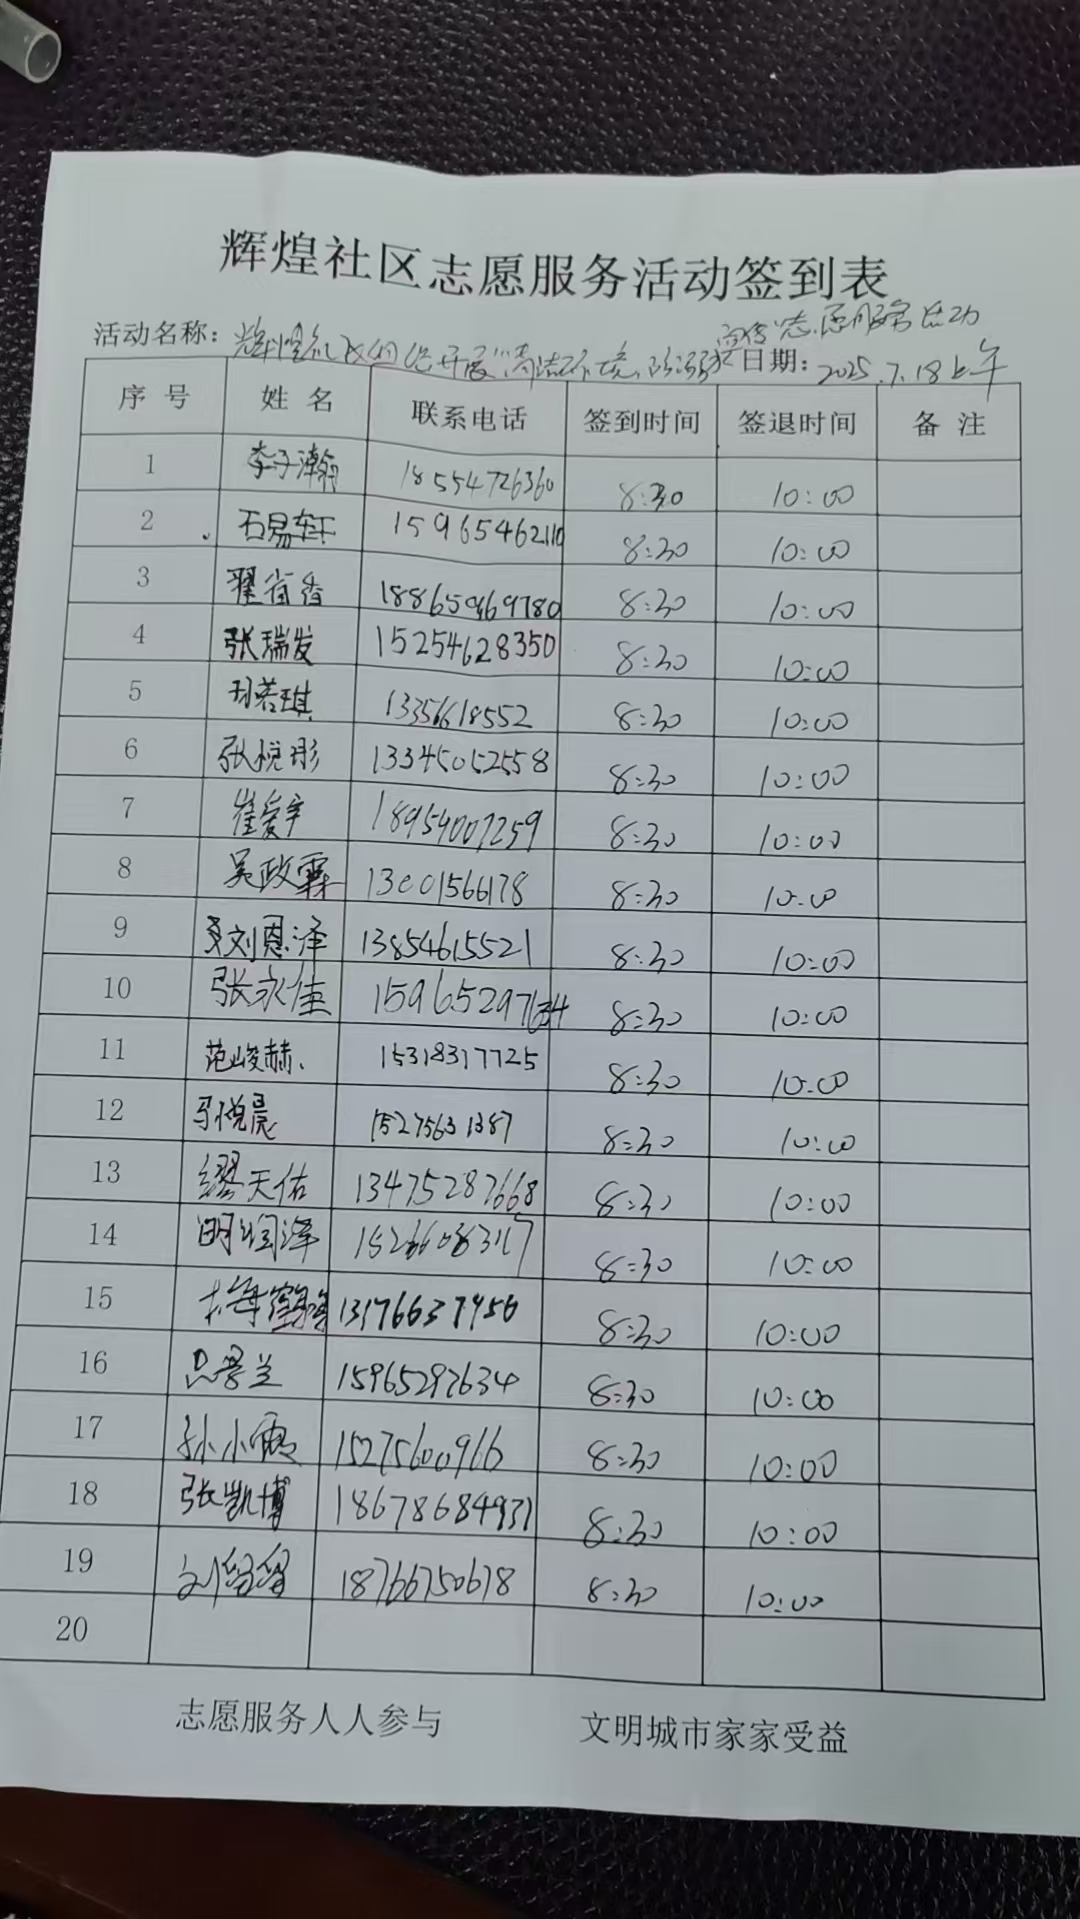 辉煌社区志愿服务活动签到表
宣传"志愿服务活动
活动名称：辉煌社区组织开展"清洁环境、防溺 日期：2025.7.18上午
序号 姓名 联系电话 签到时间 签退时间 备注
1 李子瀚 18554726360 8:30 10:00
2 石易轩 15965462110 8:30 10:00
3 翟省香 18865969780 8:30 10:00
4 张瑞发 15254628350 8:30 10:00
5 孙若琪 13356618552 8:30 10:00
6 张悦彤 13345052558 8:30 10:00
7 崔爱辛 18954007259 8:30 10:00
8 吴政霖 13001566178 8:30 10:00
9 刘恩泽 13854615521 8:30 10:00
10 张永佳 15965297634 8:30 10:00
11 范峻赫 15318317725 8:30 10:00
12 马悦晨 15275631387 8:30 10:00
13 缪天佑 13475287668 8:30 10:00
14 明润泽 8:30 10:00
15 13176637956 8:30 10:00
16 吕景兰 15965297634 8:30 10:00
17 孙小霞 15275600966 8:30 10:00
18 张凯博 18678684931 8:30 10:00
19 刘留留 18766750678 8:30 10:00
20
志愿服务人人参与 文明城市家家受益